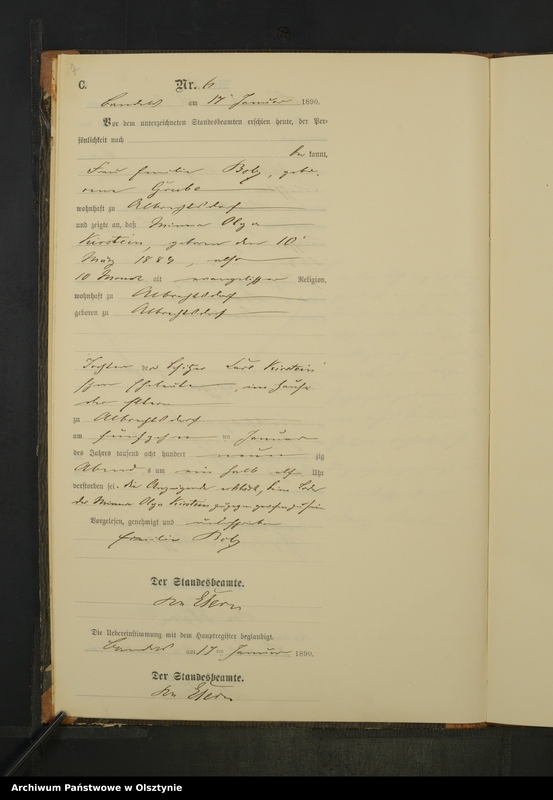 7
C.
Nr. 6
Landsb am 17 Januar 1890.
Vor dem unterzeichneten Standesbeamten erschien heute, der Per-
sönlichkeit nach
be kannt,
Frau Emilie Boly, gebo-
rene Grube
wohnhaft zu Albrechtsdorf
und zeigte an, daß Minna Olga
Kirstein, geboren den 10
März 1889, also
10 Monat alt evangelischer Religion,
wohnhaft zu Albrechtsdorf
geboren zu Albrechtsdorf
Tochter der Besitzer Karl Kirstein
schen Eheleute, im Hause
der Eltern
zu Albrechtsdorf
am fünfzehn ten Januar
des Jahres tausend acht hundert neun zig
Abend s um ein halb elf Uhr
verstorben sei. die Anzeigende erklärt, beim Tode
der Minna Olga Kirstein zugegen gewesen zu sein
Vorgelesen, genehmigt und unterschrieben
Emilie Boly
Der Standesbeamte.
Die Uebereinstimmung mit dem Hauptregister beglaubigt.
am 17 ten Januar 1890.
Der Standesbeamte.
Archiwum Państwowe w Olsztynie